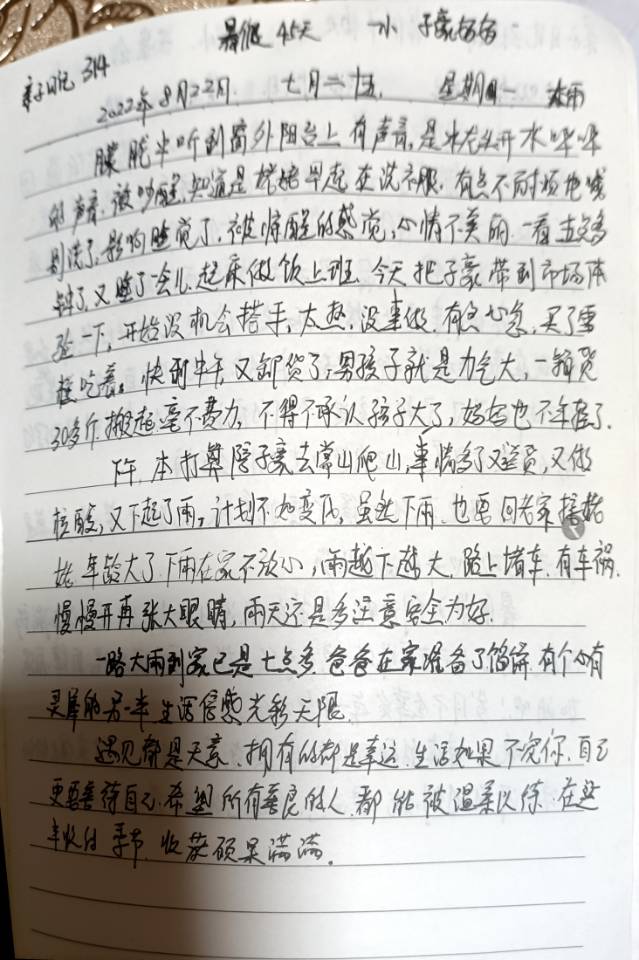 暑假45天 一水 子豪妈妈
亲子日记 314
2022年8月22月. 七月二十五. 星期一 雨
朦胧中听到窗外阳台上有声音,是水龙头开水哗哗
的声音,被吵醒,知道是姥姥早起在洗衣服,有点不耐烦也喊
别洗了,影响睡觉了.被惊醒的感觉,心情不美丽.一看五点多
钟了,又睡了一会儿,起床做饭上班.今天把子豪带到市场体
验一下,开始没机会搭手,太热,没事做,有点心急,买了雪
糕吃着。快到中午,又卸货了,男孩子就是力气大,一箱货
30多斤,搬起毫不费力,不得不承认孩子大了,妈妈也不年轻了.
下午,本打算陪子豪去常山爬山,事情多了又送货,又做
核酸,又下起了雨,计划不如变化,虽然下雨,也要回老家接姥
姥 年龄大了下雨在家不放心,雨越下越大.路上堵车.有车祸.
慢慢开再张大眼睛,雨天还是多注意安全为好.
一路大雨到家已是七点多,爸爸在家准备了馅饼,有个心有
灵犀的另一半 生活倍感光彩无限.
遇见都是天意.拥有的都是幸运.生活如果不宠你.自己
更要善待自己.希望所有善良的人.都能被温柔以待.在这
丰收的季节.收获硕果满满.